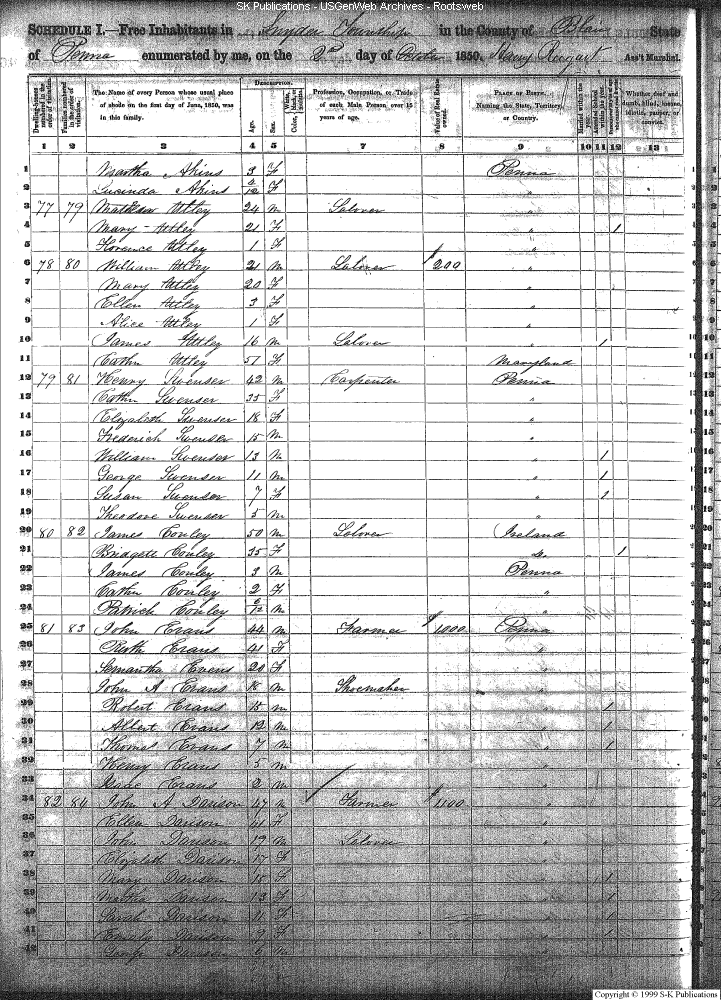 SK Publications - USGenWeb Archives - Rootsweb
SCHEDULE I.—Free Inhabitants in Snyder Township in the County of Blair State
of Penna enumerated by me, on the 2nd day of Octo 1850. Ass't Marshal.
DESCRIPTION.
Dwelling-houses numbered in the order of visitation.
Families numbered in the order of visitation.
The Name of every Person whose usual place of abode on the first day of June, 1850, was in this family.
Age.
Sex.
Color, White, black, or mulatto.
Profession, Occupation, or Trade of each Male Person over 15 years of age.
Value of Real Estate owned.
PLACE OF BIRTH. Naming the State, Territory, or Country.
Married within the year.
Attended School within the year.
Whether deaf and dumb, blind, insane, idiotic, pauper, or convict.
1 2 3 4 5 6 7 8 9 10 11 12 13
1 Martha Akins 3 F Penna
2 Lucinda Akins F "
3 77 79 Mathew Utley 24 M Laborer "
4 Mary Utley 21 F " 1
5 Florence Utley 1 F "
6 78 80 William Utley 21 M Laborer $200 "
7 Mary Utley 20 F "
8 Ellen Utley 3 F "
9 Alice Utley 1 F "
10 James Utley 16 M Laborer " 1
11 Cathn Utley 51 F Maryland
12 79 81 Henry Swenser 42 M Carpenter Penna
13 Cathn Swenser 35 F "
14 Elizabeth Swenser 18 F "
15 Frederick Swenser 15 M "
16 William Swenser 13 M " 1
17 George Swenser 11 M " 1
18 Susan Swenser 7 F " 1
19 Theodore Swenser 5 M "
20 80 82 James Conley 50 M Laborer Ireland
21 Bridgett Conley 35 F do. 1
22 James Conley 3 M Penna
23 Cathn Conley 2 F "
24 Patrick Conley 6/12 M "
25 81 83 John Evans 44 M Farmer $1000 Penna
26 Ruth Evans 41 F "
27 Semantha Evens 20 F "
28 John A Evans 18 M Shoemaker "
29 Robert Evans 15 M " 1
30 Albert Evans 12 M " 1
31 Thomas Evans 7 M " 1
32 Henry Evans 5 M "
33 Isaac Evans 2 M "
34 82 84 John A Davison 47 M Farmer $1100 "
35 Ellen Davison 41 F "
36 John Davison 19 M Laborer "
37 Elizabeth Davison 17 F "
38 Mary Davison 15 F " 1
39 Martha Davison 13 F " 1
40 Sarah Davison 11 F " 1
41 Emily Davison 9 F " 1
42 Davison 6 M
Copyright © 1999 S-K Publications